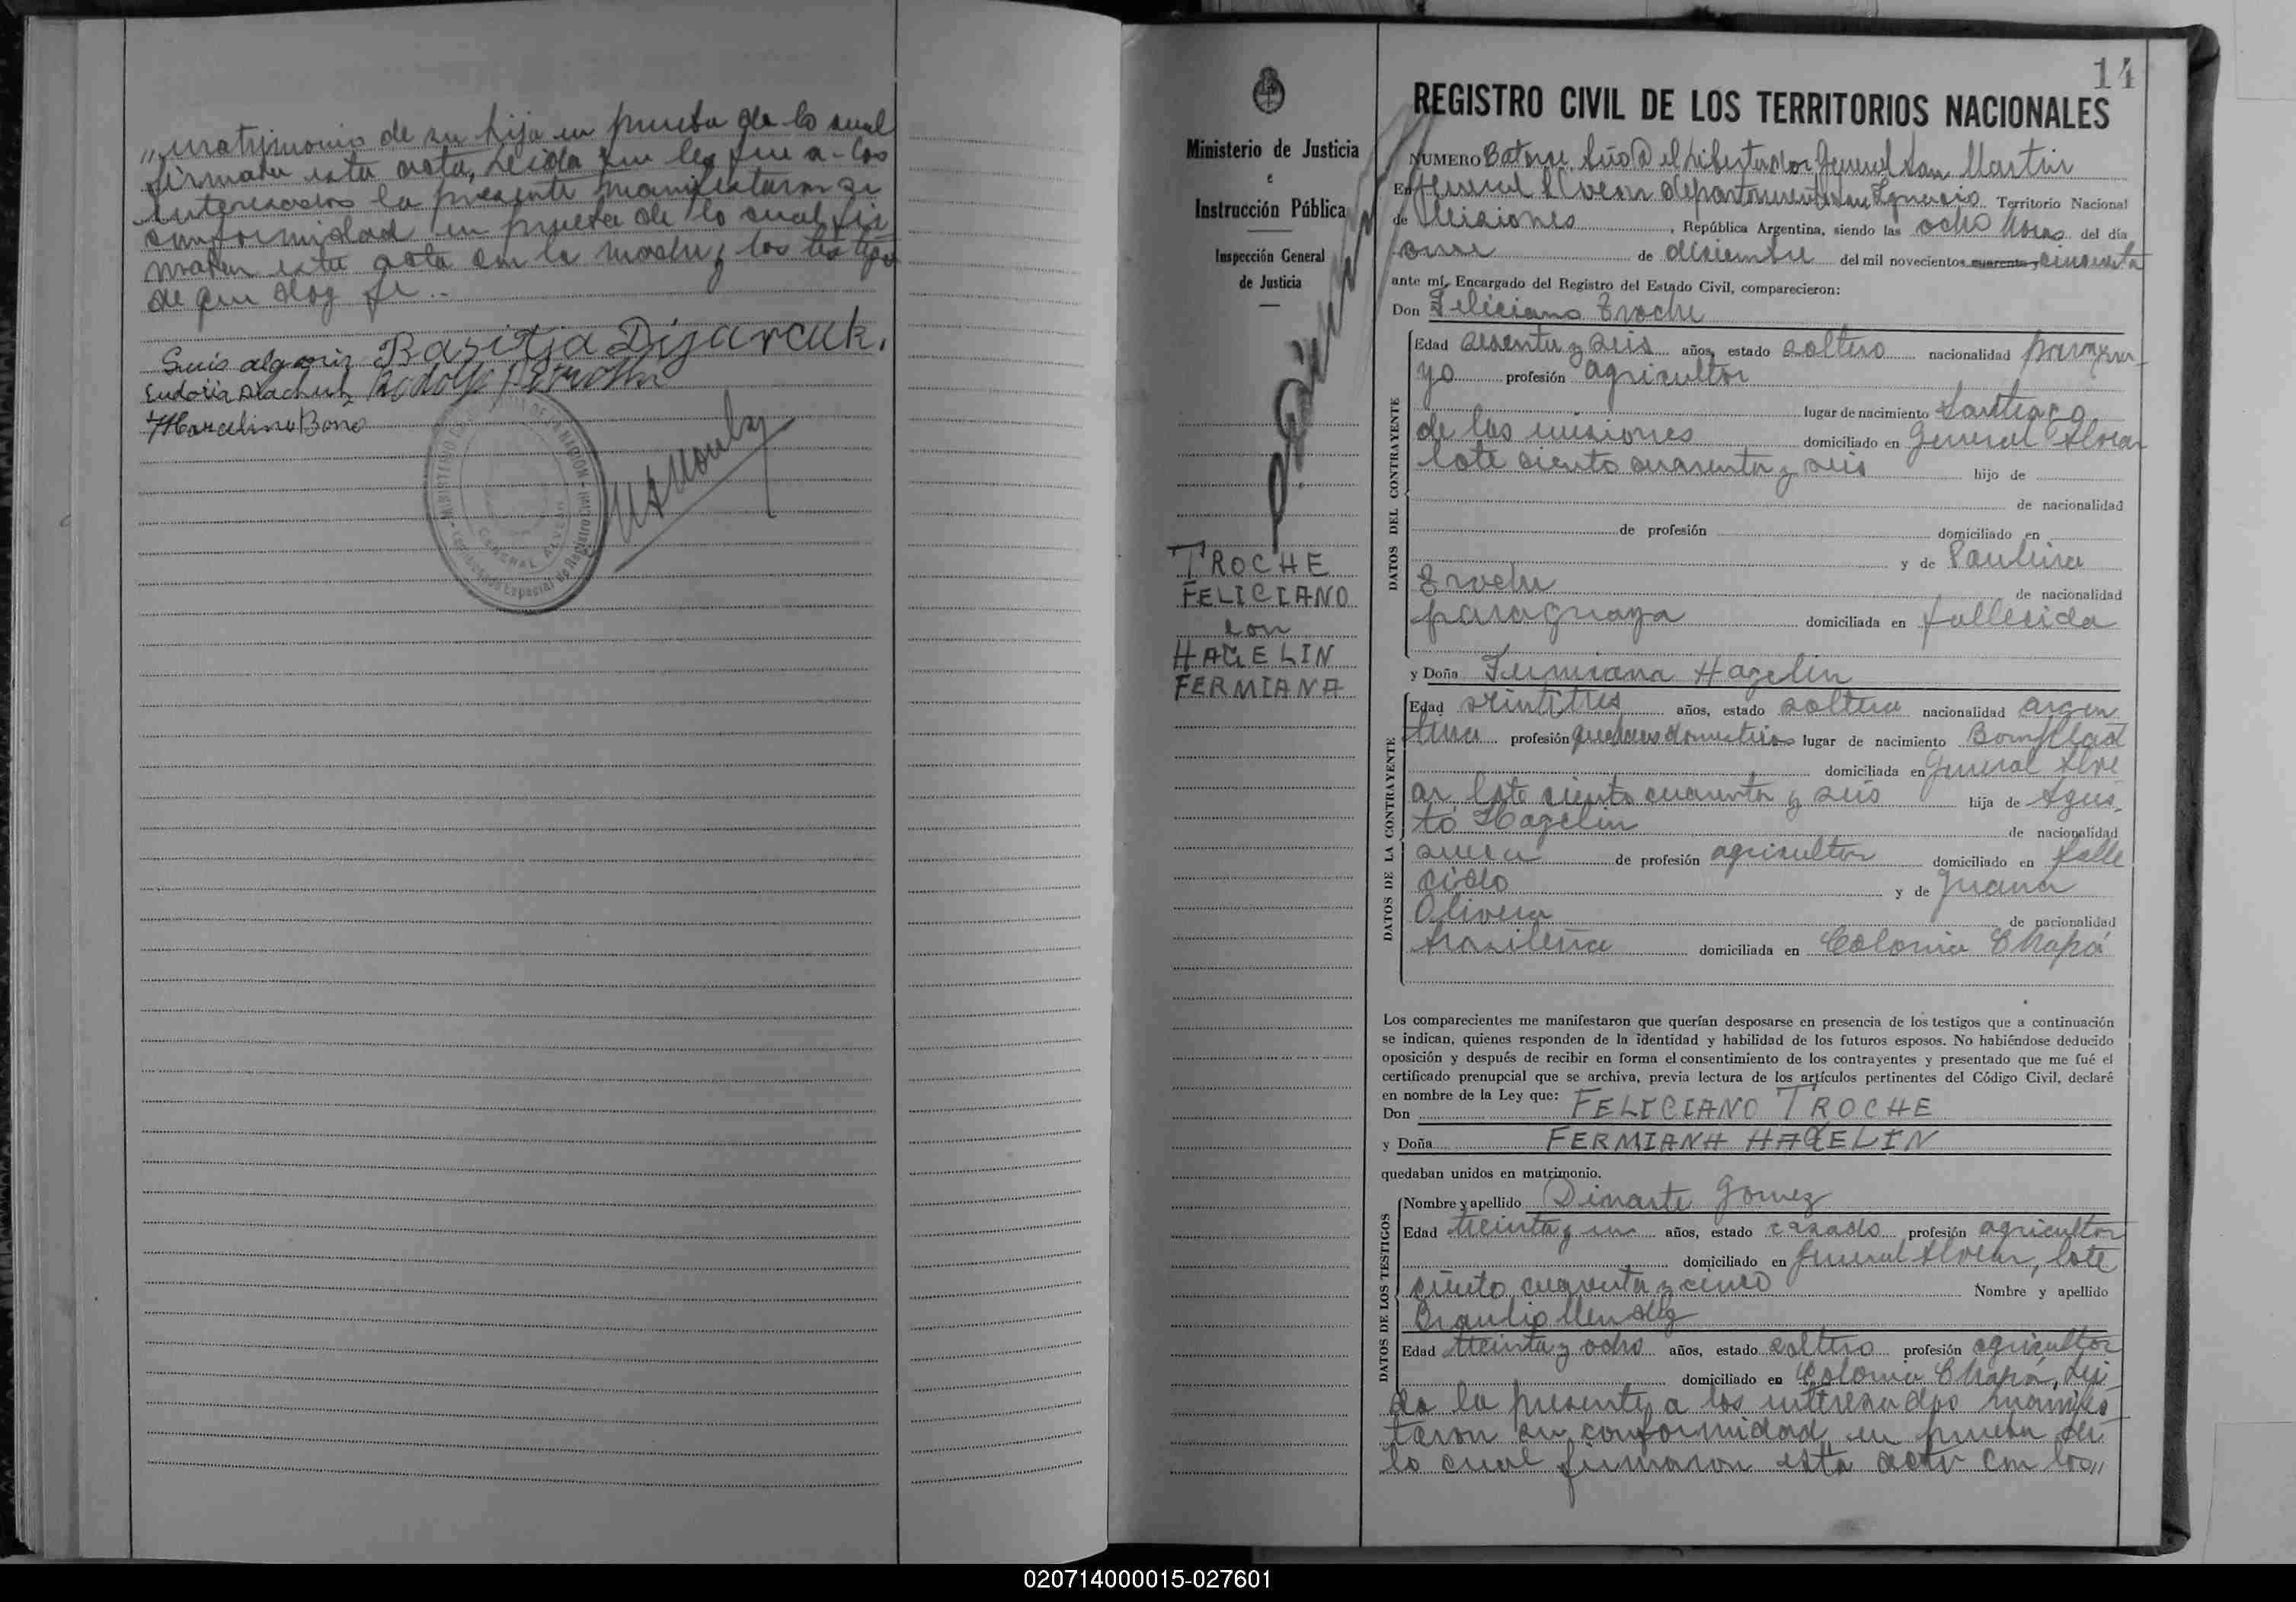 „matrimonio de su hija en prueba de lo cual
firmara esta acta, Leida que les fue a-los
interesados la presente manifestaron su
conformidad en prueba de lo cual fir
maron esta acta con la madre y los testigos
de que doy fe..
Luis Basitja Dijarcuk.
Eudosia
Marcelino
MINISTERIO DE LA NACION
GENERAL ALVEAR
Registro Civil
14
Ministerio de Justicia
e
Instrucción Pública
Inspección General
de Justicia
TROCHE
FELICIANO
con
HAGELIN
FERMIANA
REGISTRO CIVIL DE LOS TERRITORIOS NACIONALES
NUMERO Catorce Año del Libertador General San Martin
En General Alvear departamento San Ignacio Territorio Nacional
de Misiones, República Argentina, siendo las ocho horas del día
once de diciembre del mil novecientos cuarenta y cincuenta
ante mí, Encargado del Registro del Estado Civil, comparecieron:
Don Feliciano Troche
DATOS DEL CONTRAYENTE
Edad sesenta y seis años, estado soltero nacionalidad paragua-
yo profesión agricultor
lugar de nacimiento Santiago
de las misiones domiciliado en General Alvear
lote ciento cuarenta y seis hijo de
de nacionalidad
de profesión domiciliado en
y de Paulina
Troche de nacionalidad
paraguaya domiciliada en fallecida
y Doña Fermiana Hagelin
DATOS DE LA CONTRAYENTE
Edad veintitres años, estado soltera nacionalidad argen
tina profesión quehaceres domesticos lugar de nacimiento Bompland
domiciliada en General Alve
ar, lote ciento cuarenta y seis hija de Agus
to Hagelin de nacionalidad
sueca de profesión agricultor domiciliado en falle
cido y de Juana
Olivera de nacionalidad
brasileña domiciliada en Colonia Chapá
Los comparecientes me manifestaron que querían desposarse en presencia de los testigos que a continuación
se indican, quienes responden de la identidad y habilidad de los futuros esposos. No habiéndose deducido
oposición y después de recibir en forma el consentimiento de los contrayentes y presentado que me fué el
certificado prenupcial que se archiva, previa lectura de los artículos pertinentes del Código Civil, declaré
en nombre de la Ley que:
Don FELICIANO TROCHE
y Doña FERMIANA HAGELIN
quedaban unidos en matrimonio.
DATOS DE LOS TESTIGOS
Nombre y apellido Dinarte Gomez
Edad treinta y un años, estado casado profesión agricultor
domiciliado en General Alvear, lote
ciento cuarenta y cinco Nombre y apellido
Braulio Mendez
Edad treinta y ocho años, estado soltero profesión agricultor
domiciliado en Colonia Chapá, Lei
da la presente a los interesados manifes
taron su conformidad en prueba de
lo cual firmaron esta acta con los„
020714000015-027601